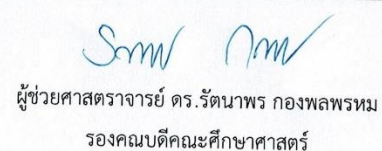 ผู้ช่วยศาสตราจารย์ ดร.รัตนาพร กองพลพรหม
รองคณบดีคณะศึกษาศาสตร์